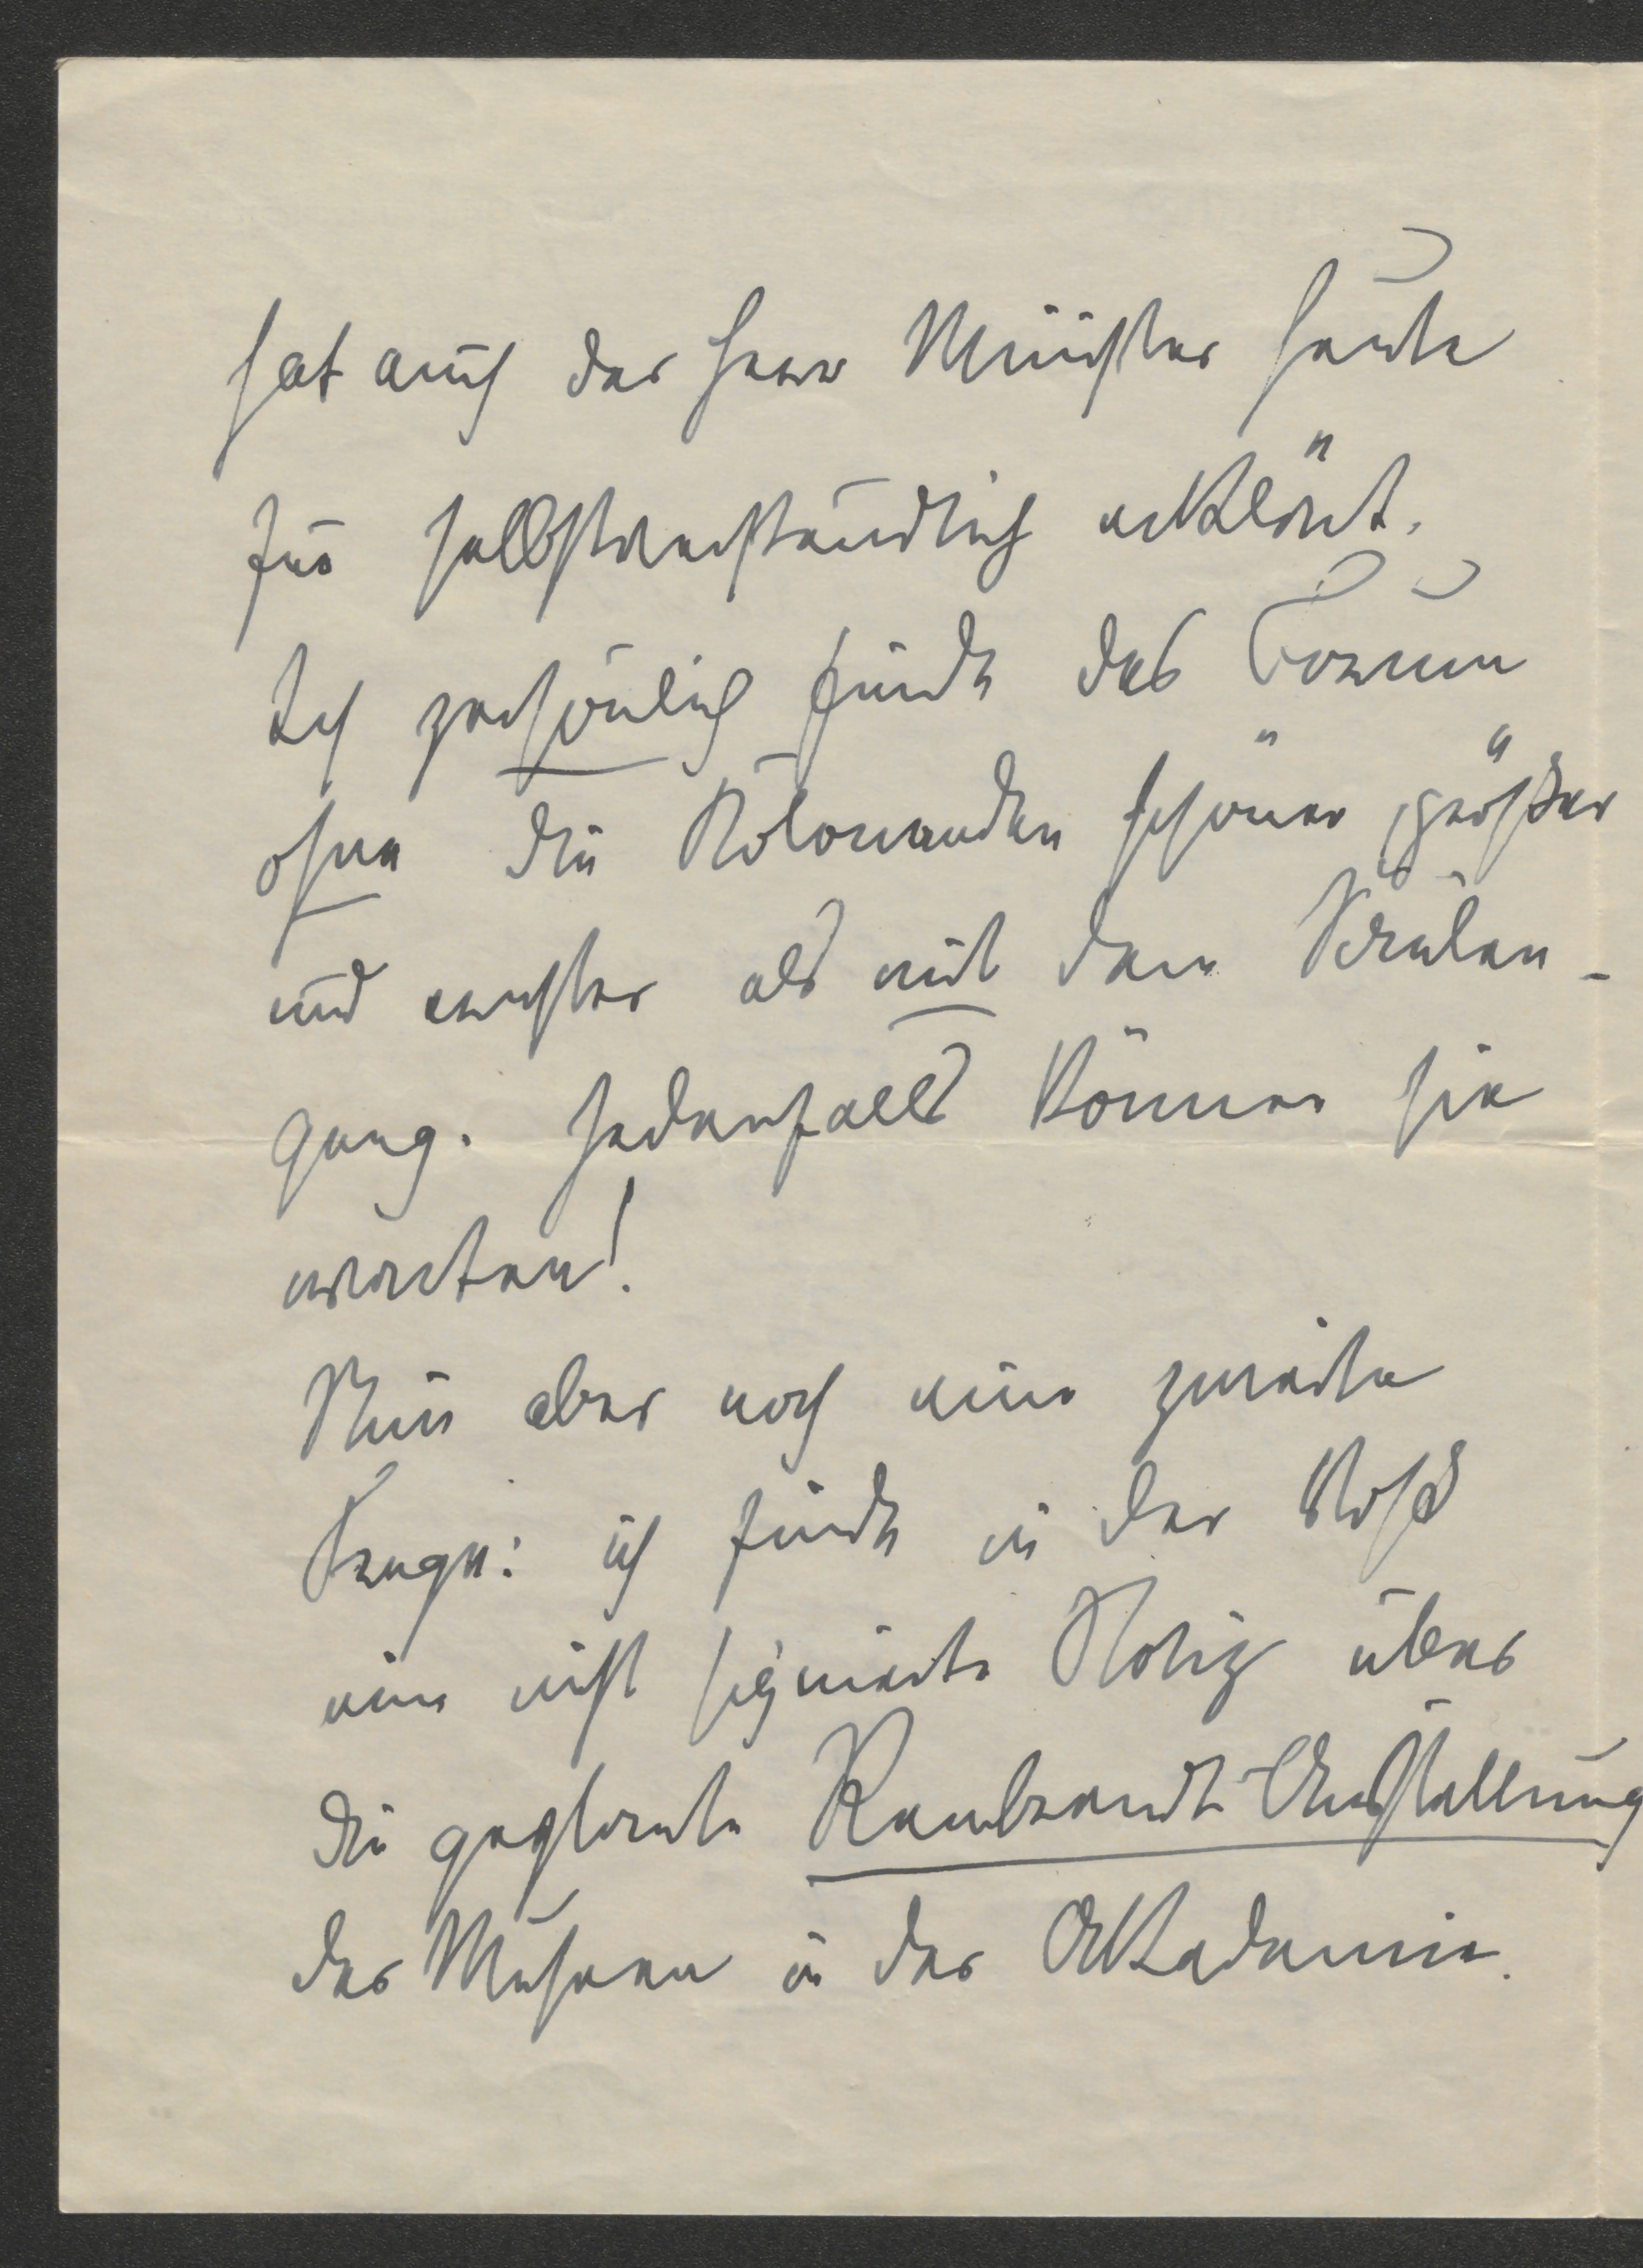 hat auch der Herr Minister heute
für selbstverständlich erklärt.
Ich persönlich finde das Forum
ohne die Kolonnaden schöner, größer
und ernster als mit dem Säulen-
gang. Jedenfalls können sie
warten!
Nun aber noch eine zweite
Frage: ich finde in der Voß
eine nicht signierte Notiz über
die geplante Rembrandt-Ausstellung
der Museen in der Akademie.